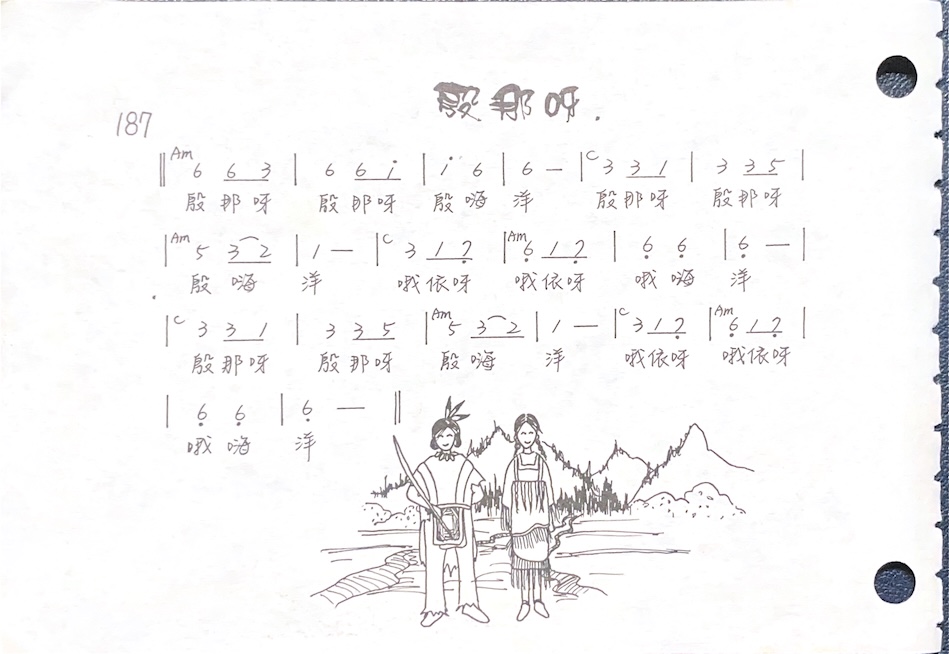 殷那呀.
187
‖Am 6 6 3 | 6 6 i | i 6 | 6 — |C 3 3 1 | 3 3 5 |
殷那呀 殷那呀 殷嗨 洋 殷那呀 殷那呀
|Am 5 3 2 | 1 — |C 3 1 7̣ |Am 6̣ 1 7̣ | 6̣ 6̣ | 6̣ — |
殷嗨 洋 哦依呀 哦依呀 哦嗨 洋
|C 3 3 1 | 3 3 5 |Am 5 3 2 | 1 — |C 3 1 7̣ |Am 6̣ 1 7̣ |
殷那呀 殷那呀 殷嗨 洋 哦依呀 哦依呀
| 6̣ 6̣ | 6̣ — ‖
哦嗨 洋